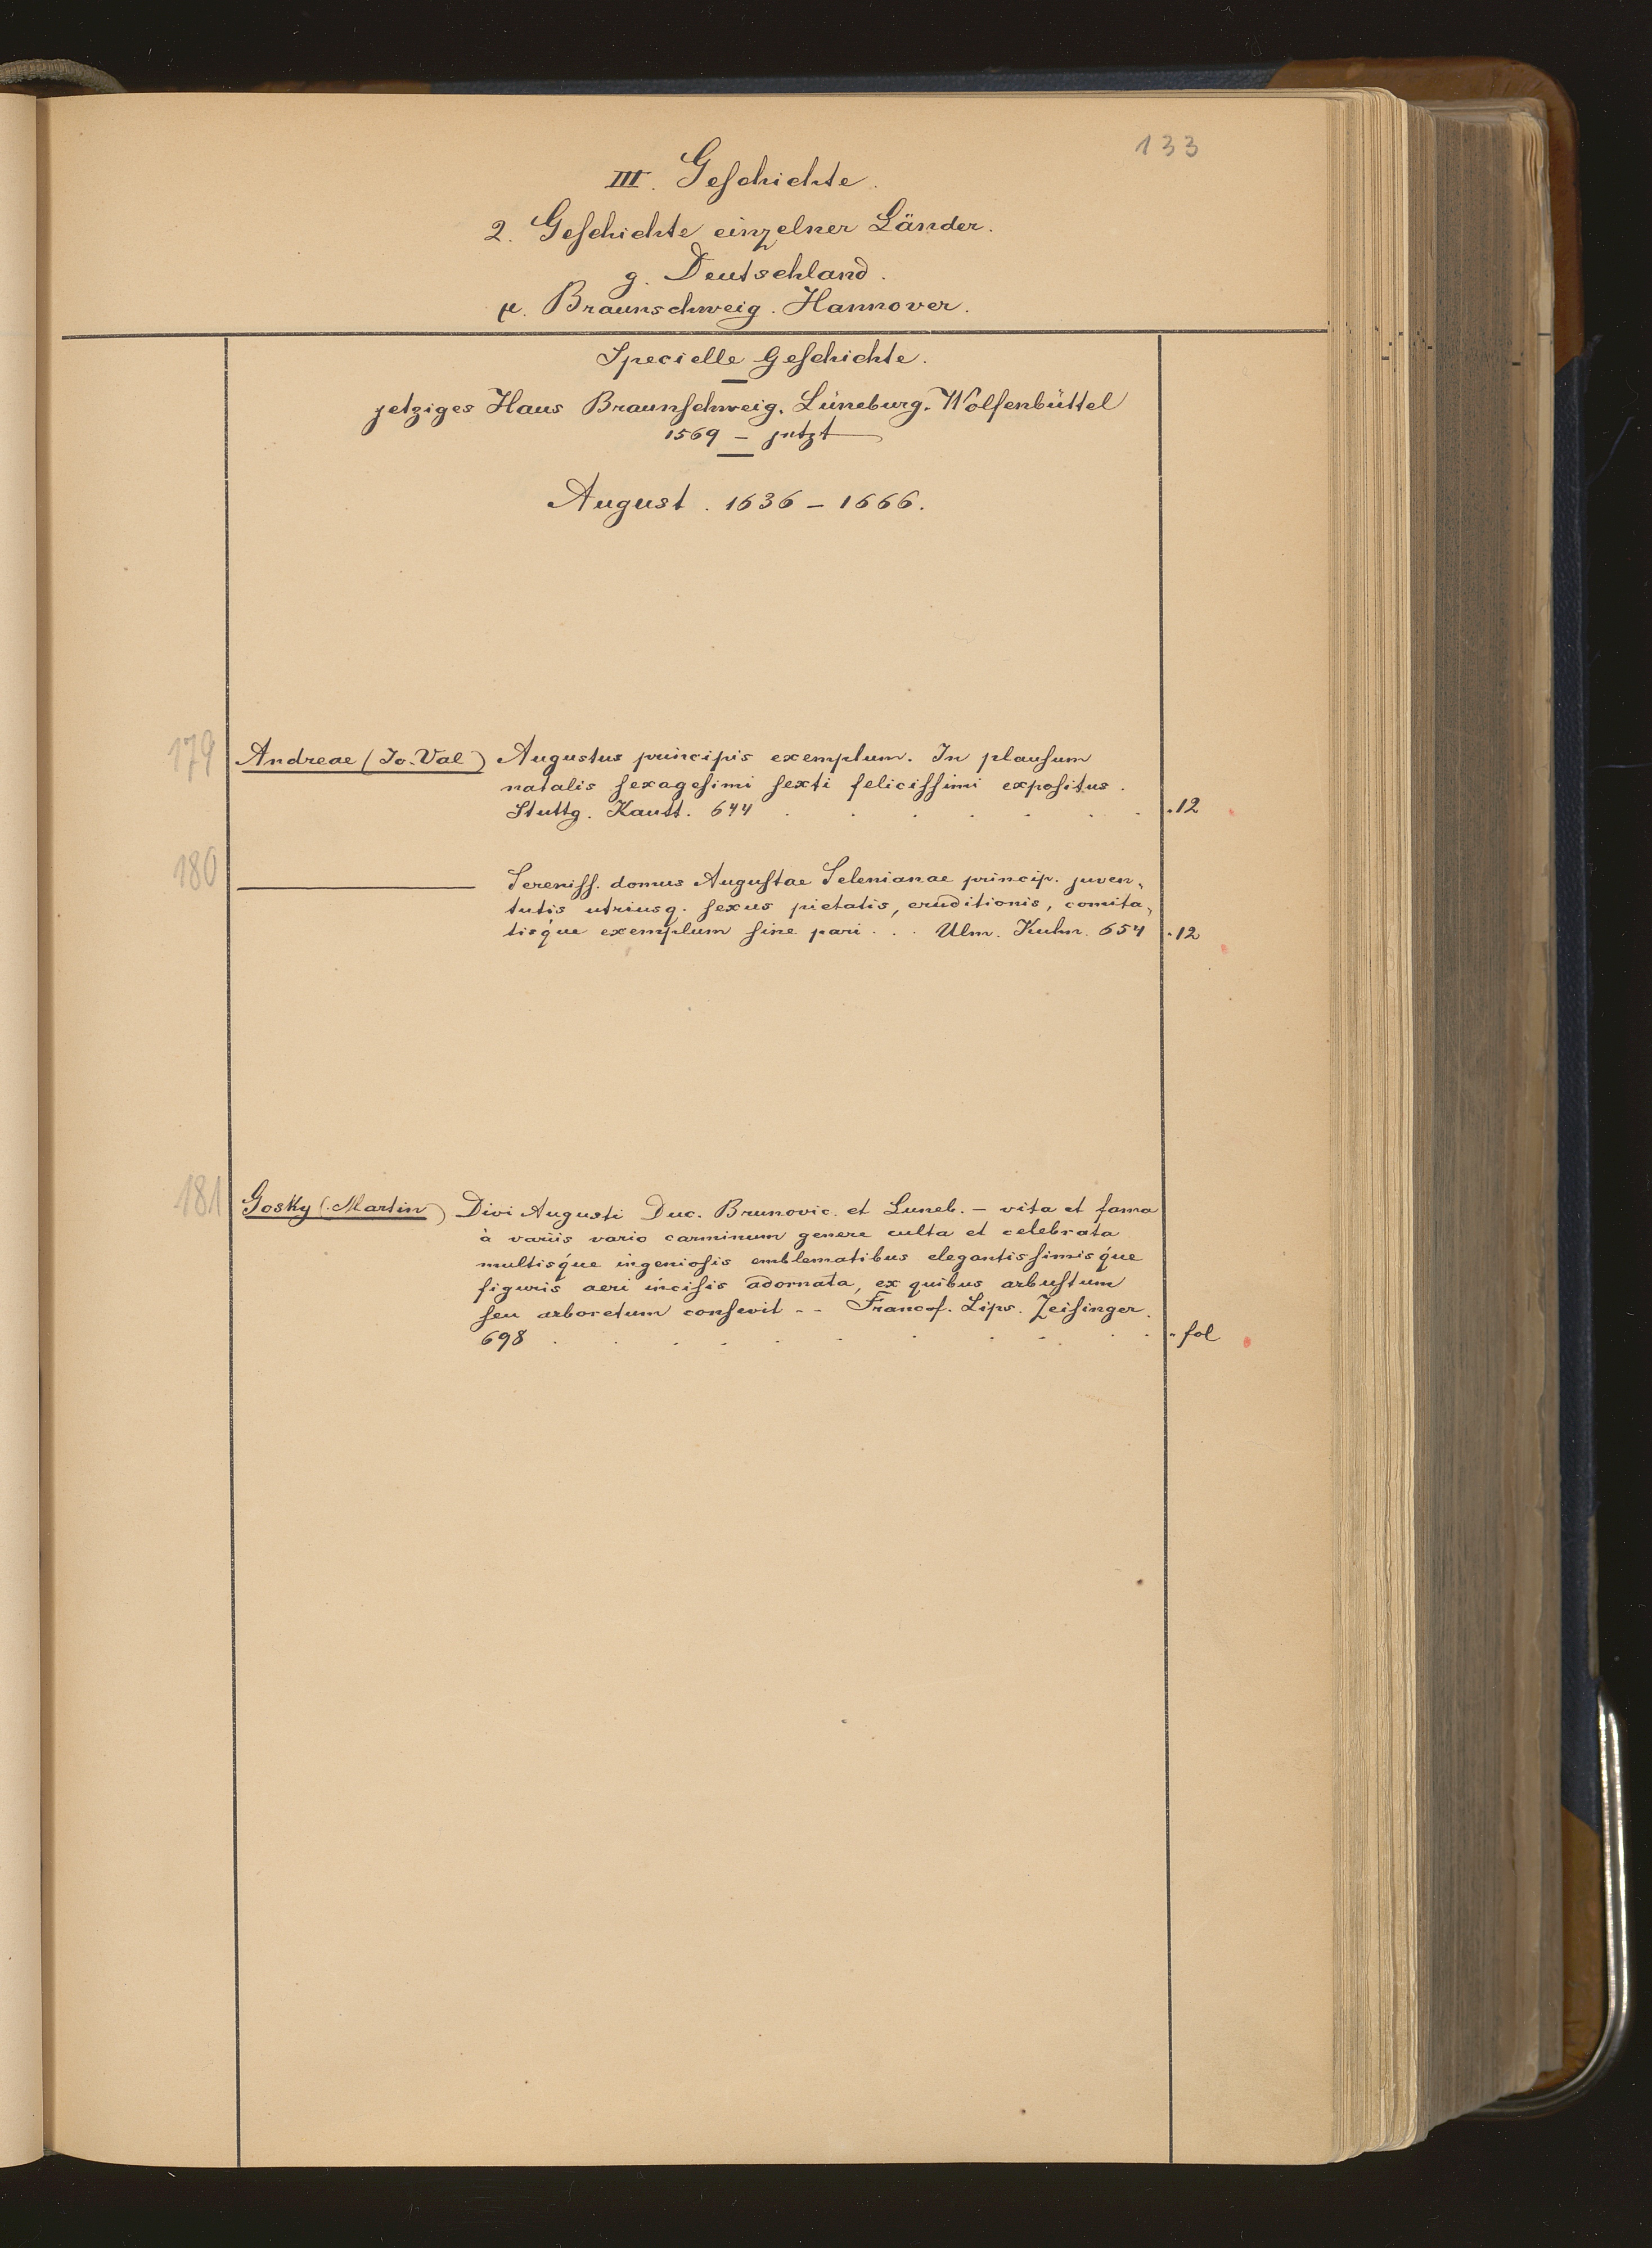 133
III. Geschichte.
2. Geschichte einzelner Länder.
g. Deutschland.
μ. Braunschweig. Hannover.
Specielle Geschichte.
jetziges Haus Braunschweig. Lüneburg. Wolfenbüttel
1569 – jetzt
August. 1636 – 1666.
179 Andreae (Jo. Val) Augustus principis exemplum. In plausum
natalis sexagesimi sexti felicissimi expositus.
Stuttg. Kautt. 644 . . . . . . . 12
180 ——— Sereniss. domus Augustae Selenianae princip. juven-
tutis utriusq. sexus pietatis, eruditionis, comita-
tisq́ue exemplum sine pari . . . Ulm. Kuhn. 654 . 12
181 Gosky (Martin) Divi Augusti Duc. Brunovic. et Luneb. – vita et fama
à variis vario carminum genere culta et celebrata
multisq́ue ingeniosis emblematibus elegantissimisq́ue
figuris aeri incisis adornata, ex quibus arbustum
seu arboretum consevit -- Francof. Lips. Zeisinger.
698 . . . . . . . . . . . fol